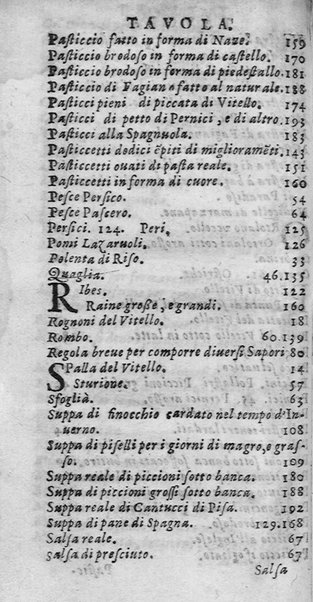 TAVOLA.
Pasticcio fatto in forma di Naue. 159
Pasticcio brodoso in forma di castello. 170
Pasticcio brodoso in forma di piedestallo. 181
Pasticcio di Fagian o fatto al naturale. 188
Pasticci pieni di piccata di Vitello. 174
Pasticci di petto di Pernici, e di altro. 193
Pasticci alla Spagnuola. 183
Pasticcetti dodici ẽpiti di miglioramẽti. 143
Pasticcetti ouati di pasta reale. 151
Pasticcetti in forma di cuore. 160
Pesce Persico. 54
Pesce Passero. 64
Persici. 124. Peri. 125
Pomi Lazaruoli. 126
Polenta di Riso. 33
Quaglia. 46.135
Ribes. 122
Raine grosse, e grandi. 160
Rognoni del Vitello. 18
Rombo. 60.139
Regola breue per comporre diuersi Sapori 80
Spalla del Vitello. 14
Sturione. 57
Sfoglià. 63
Suppa di finocchio cardato nel tempo d'In-
uerno. 108
Suppa di piselli per i giorni di magro, e gras-
so. 109
Suppa reale di piccioni sotto banca. 180
Suppa di piccioni grossi sotto banca. 188
Suppa reale di Cantucci di Pisa. 192
Suppa di pane di Spagna. 129.168
Salsa reale. 67
Salsa di presciuto. 67
Salsa